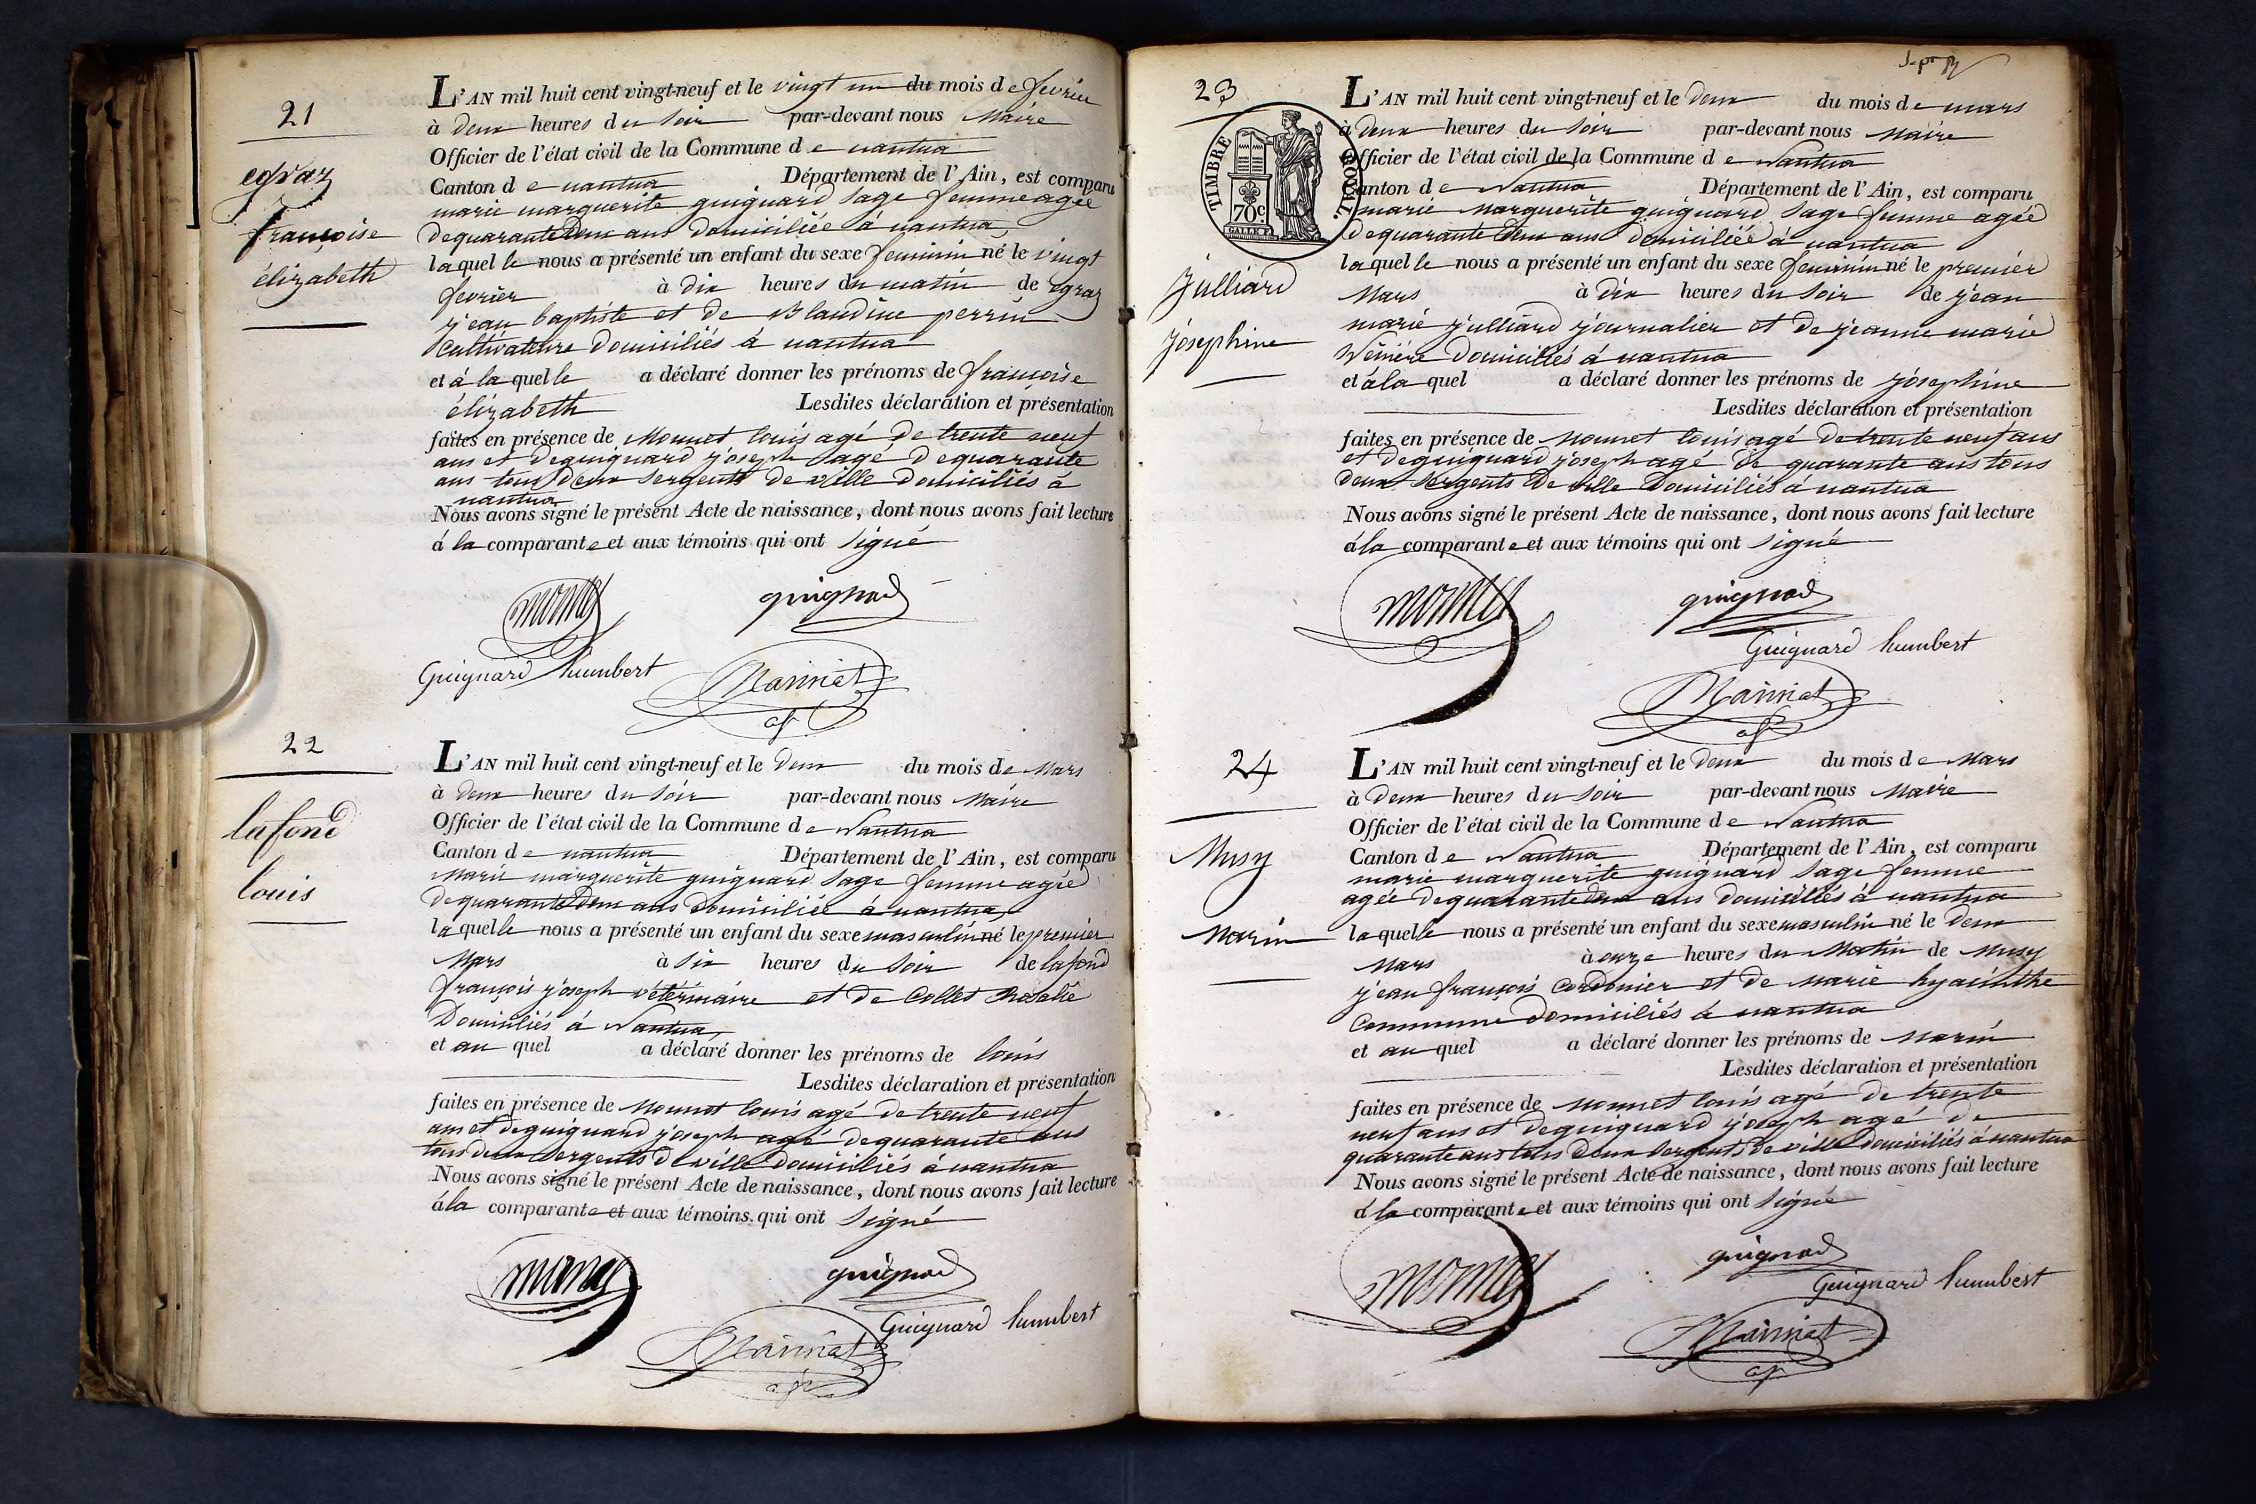 21
egraz
françoise
élizabeth
L'AN mil huit cent vingt-neuf et le vingt un du mois de fevrier
à deux heures du soir par-devant nous Maire
Officier de l'état civil de la Commune de nantua
Canton de nantua Département de l'Ain, est comparu
marie marguerite guignard sage femme agée
de quarante deux ans domiciliée à nantua
laquelle nous a présenté un enfant du sexe feminin né le vingt
fevrier à dix heures du matin de egraz
jean baptiste et de Blandine perrin
cultivateurs domiciliés à nantua
et à la quelle a déclaré donner les prénoms de françoise
élizabeth Lesdites déclaration et présentation
faites en présence de Monnet louis agé de trente neuf
ans et de guignard joseph agé de quarante
ans tous deux sergents de ville domiciliés à
nantua
Nous avons signé le présent Acte de naissance, dont nous avons fait lecture
à la comparante et aux témoins qui ont signé
monnet guignard
Guignard humbert
22
lafond
louis
L'AN mil huit cent vingt-neuf et le deux du mois de Mars
à deux heures du soir par-devant nous Maire
Officier de l'état civil de la Commune de Nantua
Canton de nantua Département de l'Ain, est comparu
Marie marguerite guignard sage femme agée
de quarante deux ans domiciliée à nantua
laquelle nous a présenté un enfant du sexe masculin né le premier
Mars à six heures du soir de lafond
françois joseph vétérinaire et de Collet Rosalie
Domiciliés à Nantua
et au quel a déclaré donner les prénoms de louis
Lesdites déclaration et présentation
faites en présence de Monnet louis agé de trente neuf
ans et de guignard joseph agé de quarante ans
tous deux sergents de ville domiciliés à nantua
Nous avons signé le présent Acte de naissance, dont nous avons fait lecture
à la comparante et aux témoins qui ont signé
monnet guignard
Guignard humbert
23
TIMBRE ROYAL
70c
julliard
josephine
L'AN mil huit cent vingt-neuf et le deux du mois de mars
à deux heures du soir par-devant nous Maire
Officier de l'état civil de la Commune de Nantua
Canton de Nantua Département de l'Ain, est comparu
marie Marguerite guignard sage femme agée
de quarante deux ans domiciliée à nantua
laquelle nous a présenté un enfant du sexe feminin né le premier
Mars à dix heures du soir de jean
marie julliard journalier et de jeanne marie
domiciliés à nantua
et à la quel a déclaré donner les prénoms de josephine
Lesdites déclaration et présentation
faites en présence de Monnet louis agé de trente neuf ans
et de guignard joseph agé de quarante ans tous
deux sergents de ville Domiciliés à nantua
Nous avons signé le présent Acte de naissance, dont nous avons fait lecture
à la comparante et aux témoins qui ont signé
monnet guignard
Guignard humbert
24
Musy
Marin
L'AN mil huit cent vingt-neuf et le deux du mois de Mars
à deux heures du soir par-devant nous Maire
Officier de l'état civil de la Commune de Nantua
Canton de Nantua Département de l'Ain, est comparu
marie marguerite guignard sage femme
agée de quarante deux ans domiciliés à nantua
laquelle nous a présenté un enfant du sexe masculin né le deux
Mars à onze heures du Matin de Musy
jean françois cordonier et de Marie hyacinthe
Commune domiciliés à nantua
et au quel a déclaré donner les prénoms de Marin
Lesdites déclaration et présentation
faites en présence de Monnet louis agé de trente
neuf ans et de guignard joseph agé de
quarante ans tous deux sergents de ville domiciliés à nantua
Nous avons signé le présent Acte de naissance, dont nous avons fait lecture
à la comparante et aux témoins qui ont signé
monnet guignard
Guignard humbert